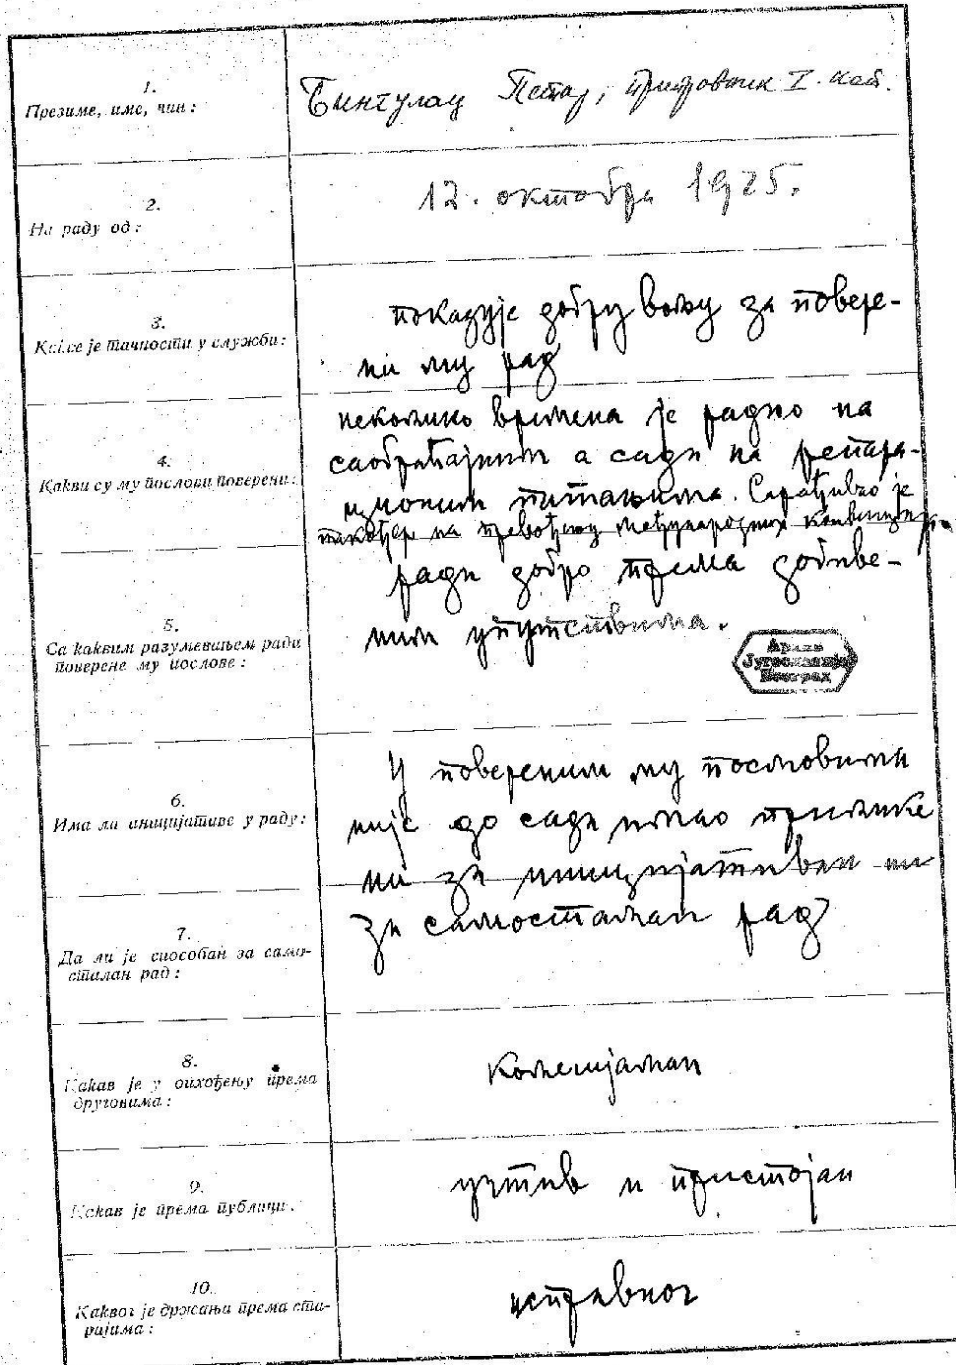 1.
Презиме, име, чин:
Бингулац Петар, приправник I. кат.
2.
На раду од:
12. октобра 1925.
3.
је тачности у служби:
показује добру вољу за повере-
ни му рад
4.
Какви су му послови поверени:
неколико времена је радио на
саобраћајним а сада на репара-
ционим питањима. Сарађивао је
такођер на превођењу међународних конвенција
5.
Са каквим разумевањем ради
поверене му послове:
ради добро према добиве-
ним упутствима.
Архив
Југославије
Београд
6.
Има ли иницијативе у раду:
У повереним му пословима
није до сада имао прилике
ни за иницијативан ни
за самосталан рад
7.
Да ли је способан за само-
сталан рад:
8.
Какав је у опхођењу према
друговима:
Колегијалан
9.
Какав је према публици.
учтив и пристојан
10.
Каквог је држања према ста-
ријима:
исправног